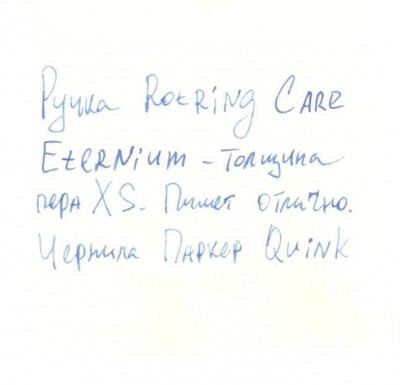 Ручка Rotring Care
Eternium - толщина
пера XS. Пишет отлично.
Чернила Паркер Quink